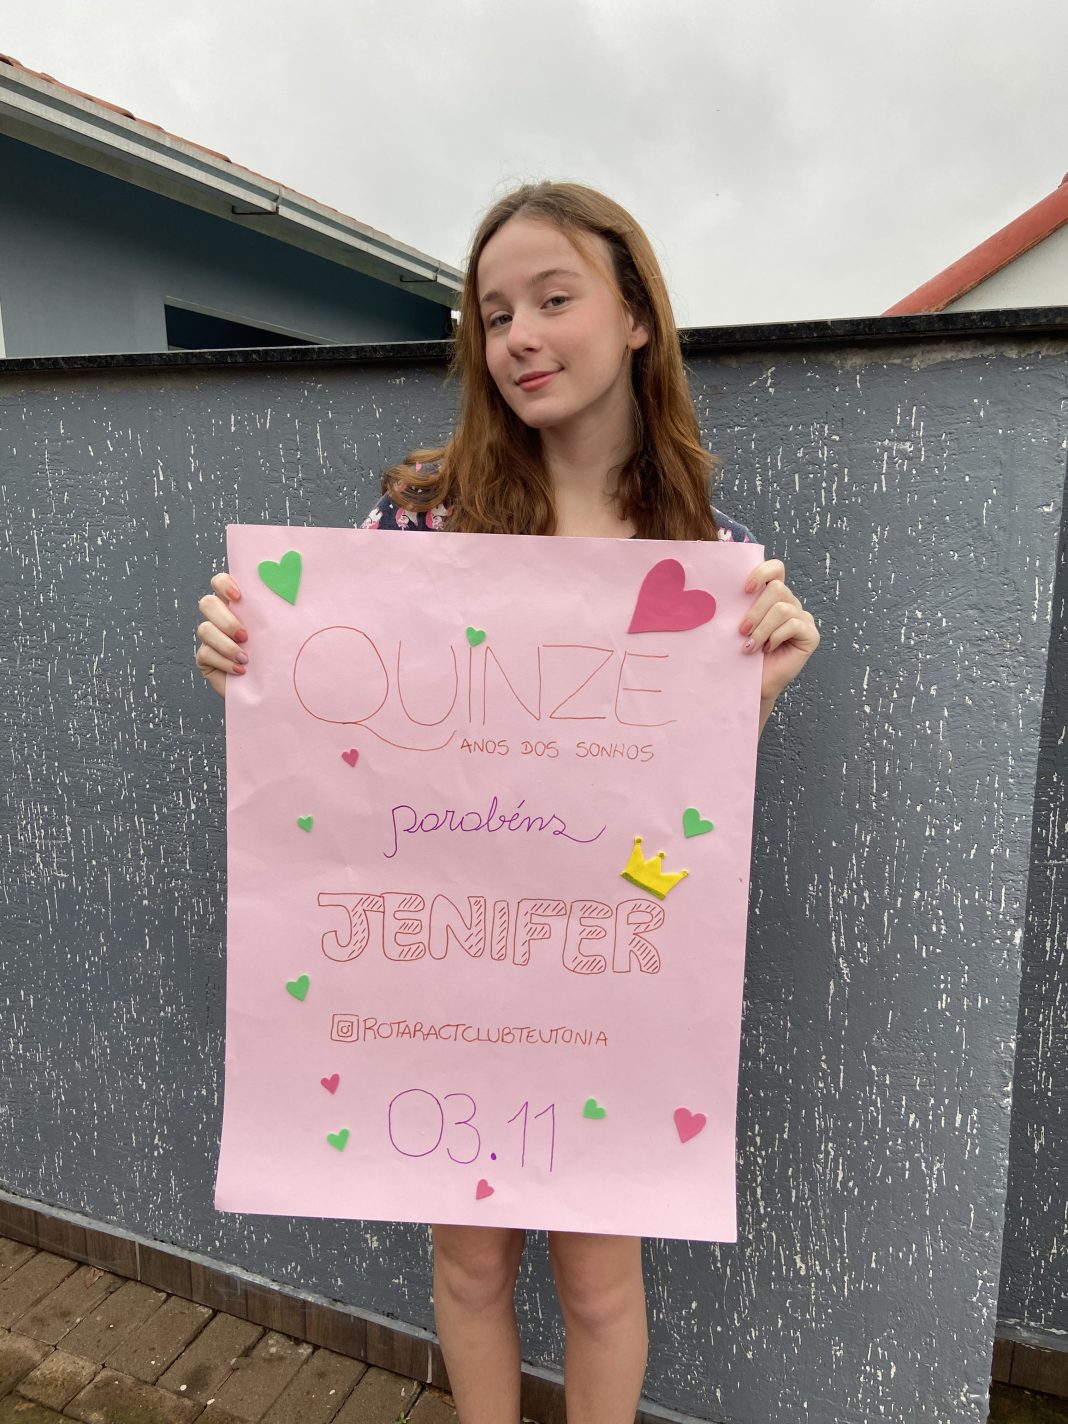 QUINZE
ANOS DOS SONHOS
parabéns
JENIFER
ROTARACTCLUBTEUTONIA
03.11